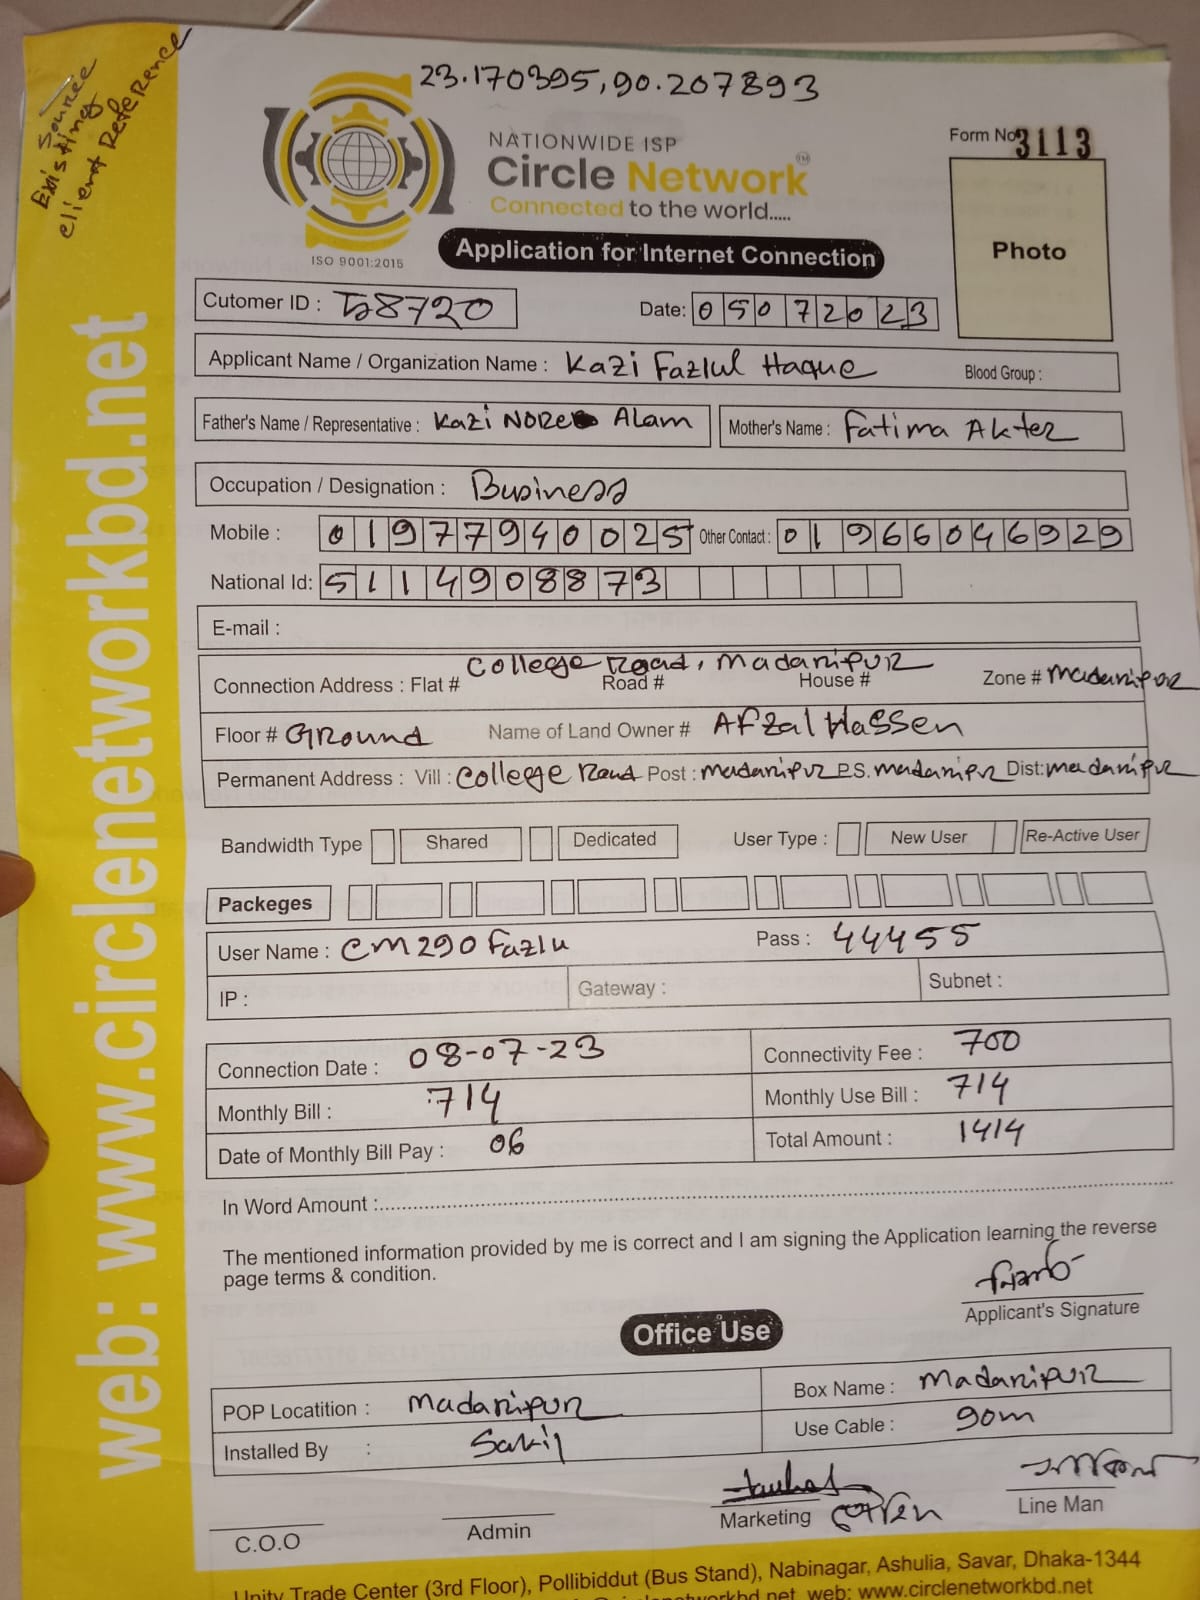 Source
Existing
client Reference
23.170395,90.207893
NATIONWIDE ISP
Circle Network
Connected to the world.....
ISO 9001:2015
Form No 3113
Photo
Application for Internet Connection
Cutomer ID : 8720 Date: 05072023
Applicant Name / Organization Name : Kazi Fazlul Haque Blood Group :
Father's Name / Representative : Kazi NORE Alam Mother's Name : Fatima Akter
Occupation / Designation : Business
Mobile : 01977940025 Other Contact : 01966046929
National Id: 5114908873
E-mail :
College Road, Madaripur
Connection Address : Flat # Road # House # Zone # Madaripur
Floor # Ground Name of Land Owner # Afzal Hassen
Permanent Address : Vill : College Road Post : Madaripur P.S. Madaripur Dist: Madaripur
Bandwidth Type Shared Dedicated User Type : New User Re-Active User
Packeges
User Name : CM290Fazlu Pass : 44455
IP : Gateway : Subnet :
Connection Date : 08-07-23 Connectivity Fee : 700
Monthly Bill : 714 Monthly Use Bill : 714
Date of Monthly Bill Pay : 06 Total Amount : 1414
In Word Amount :
The mentioned information provided by me is correct and I am signing the Application learning the reverse
page terms & condition.
Applicant's Signature
Office Use
POP Locatition : Madaripur Box Name : Madaripur
Installed By : Sakil Use Cable : 90m
C.O.O Admin Marketing Line Man
Unity Trade Center (3rd Floor), Pollibiddut (Bus Stand), Nabinagar, Ashulia, Savar, Dhaka-1344
web: www.circlenetworkbd.net
web: www.circlenetworkbd.net